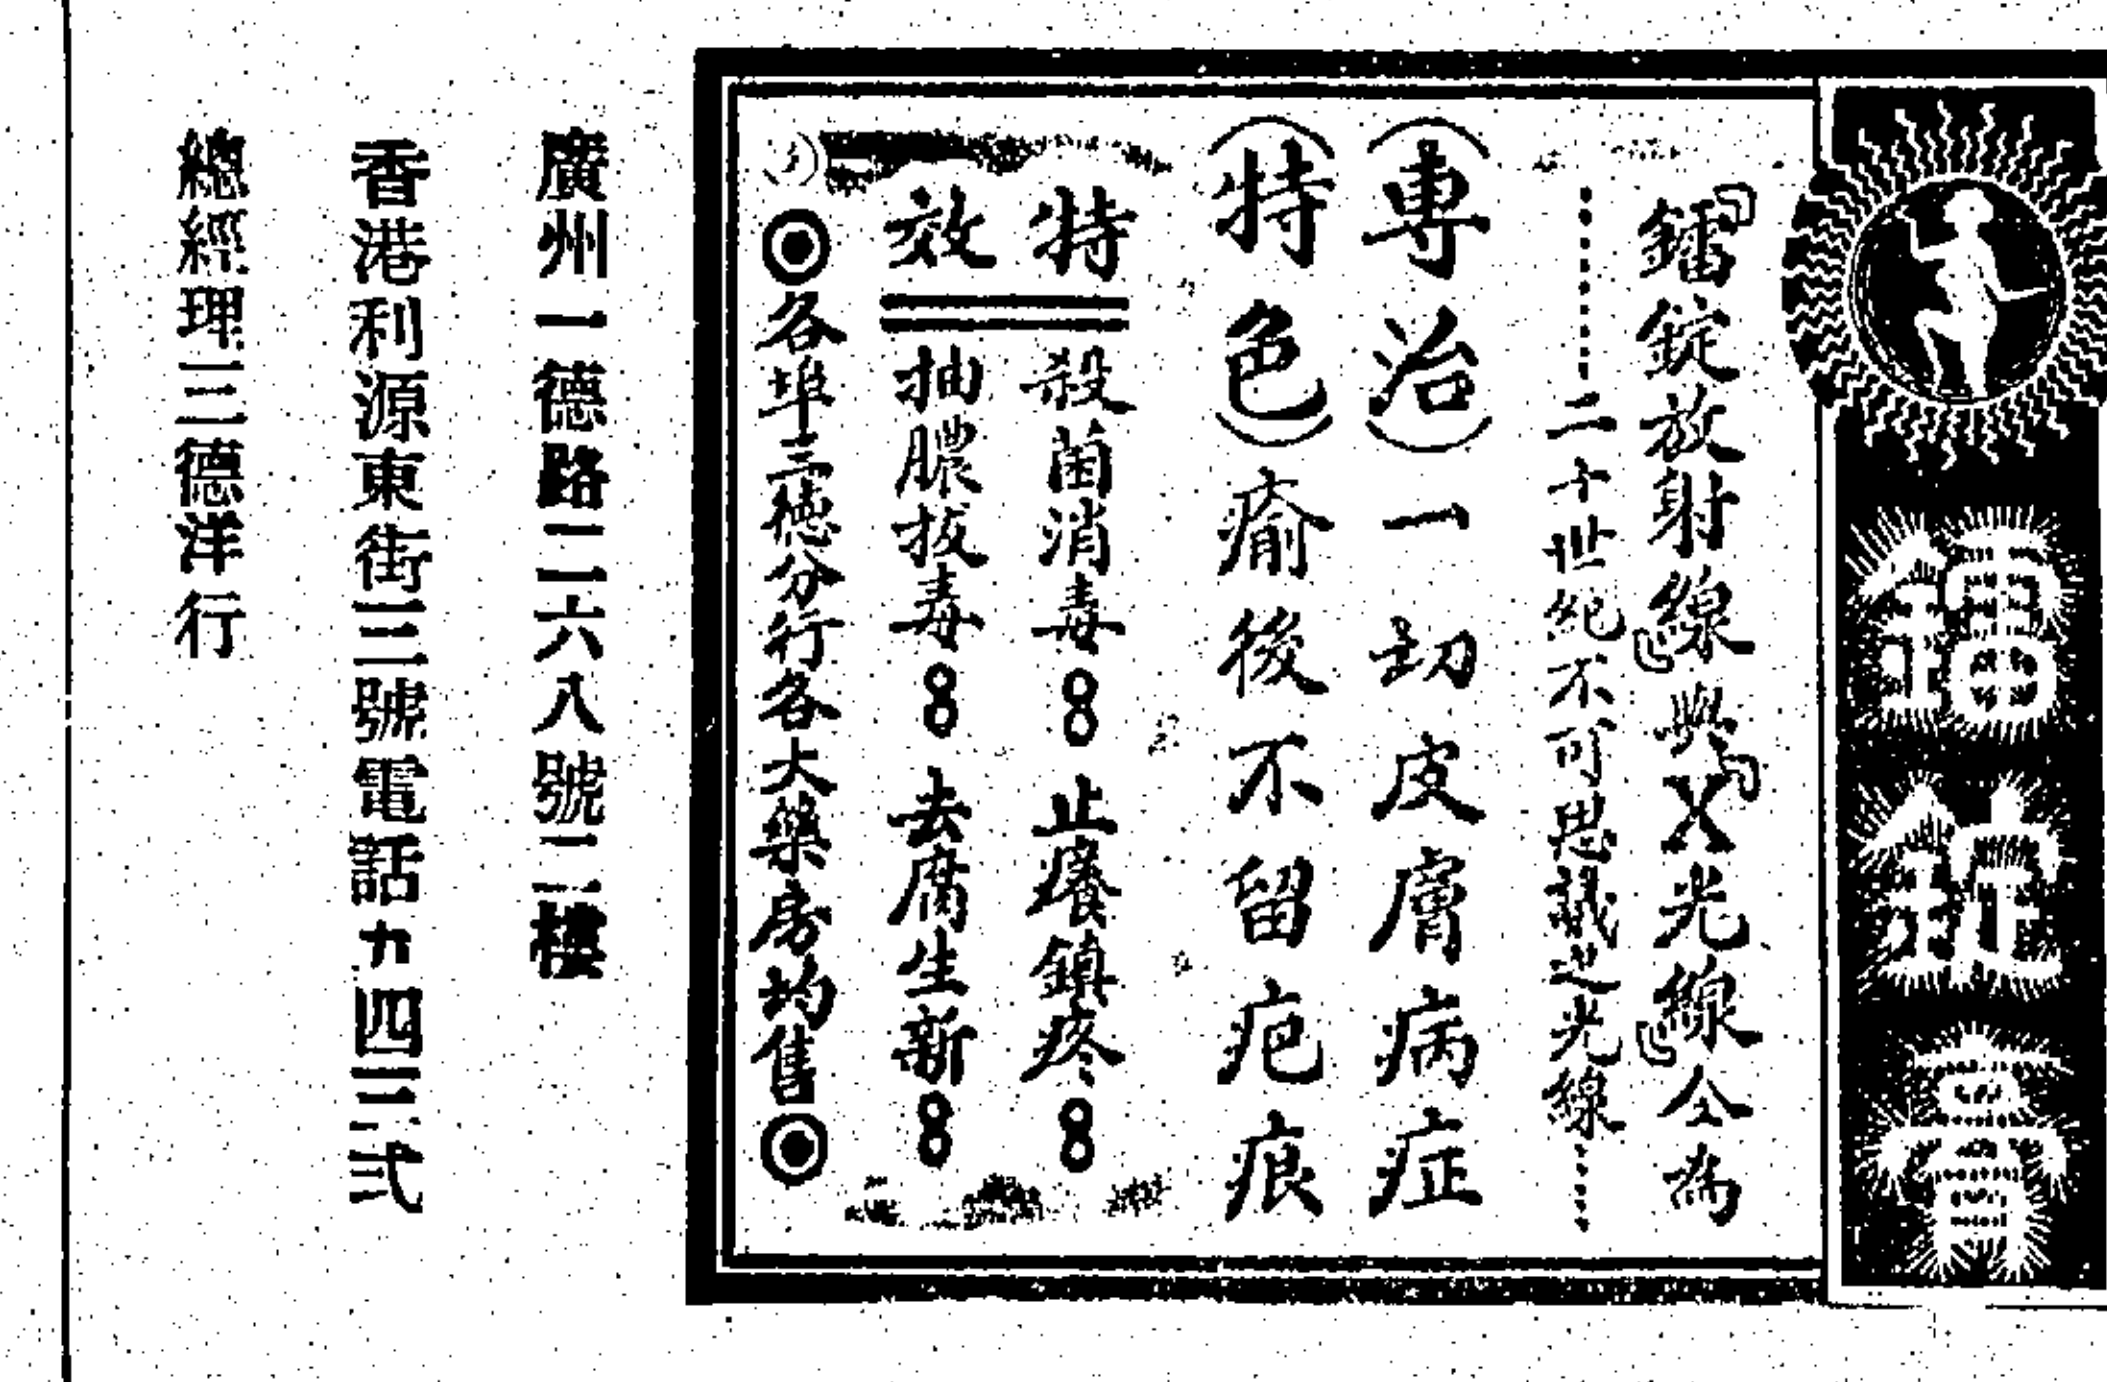 鐳錠膏
『鐳錠放射線』與『X光線』仝為
二十世紀不可思議之光線
（專治）一切皮膚病症
（特色）瘉後不留疤痕
特效
殺菌消毒 止癢鎮疼
抽膿拔毒 去腐生新
◎各埠三德分行各大藥房均售◎
廣州一德路二一六八號二樓
香港利源東街三號電話九四三弍
總經理三德洋行